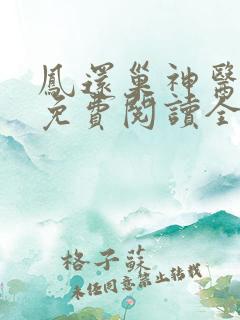 鳳還巢神醫
免費閱讀全
格子蘇
未任同意禁止转载